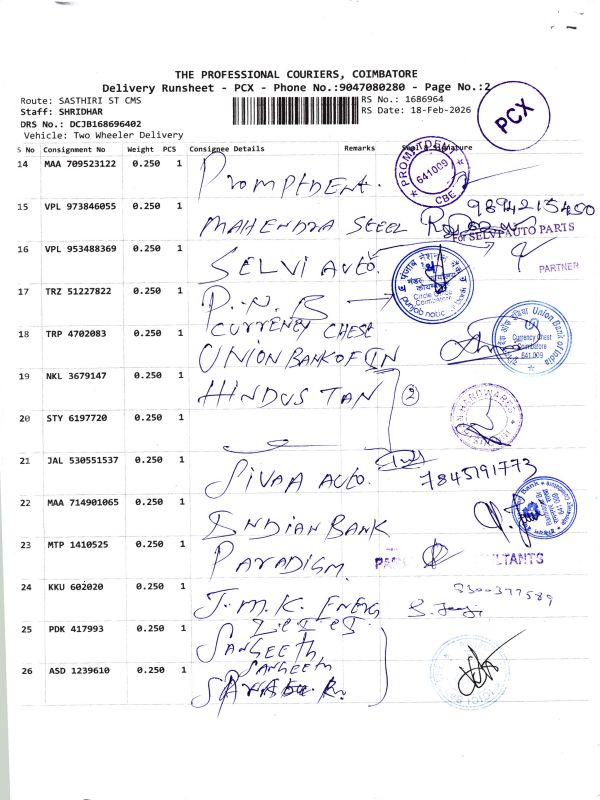 THE PROFESSIONAL COURIERS, COIMBATORE
Delivery Runsheet - PCX - Phone No.:9047080280 - Page No.:2
Route: SASTHIRI ST CMS
RS No.: 1686964
Staff: SHRIDHAR
RS Date: 18-Feb-2026
DRS No.: DCJB168696402
Vehicle: Two Wheeler Delivery
PCX
S No Consignment No Weight PCS Consignee Details Remarks Seal & Signature
14 MAA 709523122 0.250 1 PROMPTDENT.
641009
CBE
15 VPL 973846055 0.250 1 MAHENDRA STEEL 9894215450
For SELVI AUTO PARTS
16 VPL 953488369 0.250 1 SELVI AUTO.
PARTNER
17 TRZ 51227822 0.250 1 P.N.B
पंजाब नेशनल बैंक
Circle Office
Coimbatore
punjab national bank
CURRENCY CHEST
18 TRP 4702083 0.250 1 UNION BANK OF IN
Union Bank of India
Currency Chest
Coimbatore
641 009
19 NKL 3679147 0.250 1 HINDUSTAN 2
HARDWARES
20 STY 6197720 0.250 1
21 JAL 530551537 0.250 1 SIVAA AUTO. 7845191773
22 MAA 714901065 0.250 1 INDIAN BANK
23 MTP 1410525 0.250 1 PARADIGM.
24 KKU 602020 0.250 1 J.M.K. ENERG 8300377589
25 PDK 417993 0.250 1 SANGEETH
SANGEETH
26 ASD 1239610 0.250 1